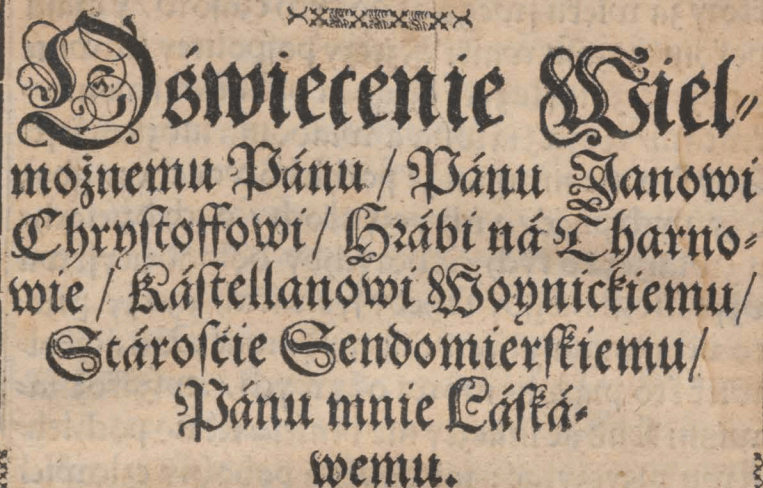 Oświecenie Wiel⸗
możnemu Pánu / Pánu Janowi
Chryſtoffowi / Hrábi ná Tharno⸗
wie / Káſtellanowi Woynickiemu /
Stároſćie Sendomierſkiemu /
Pánu mnie Láſká⸗
wemu.